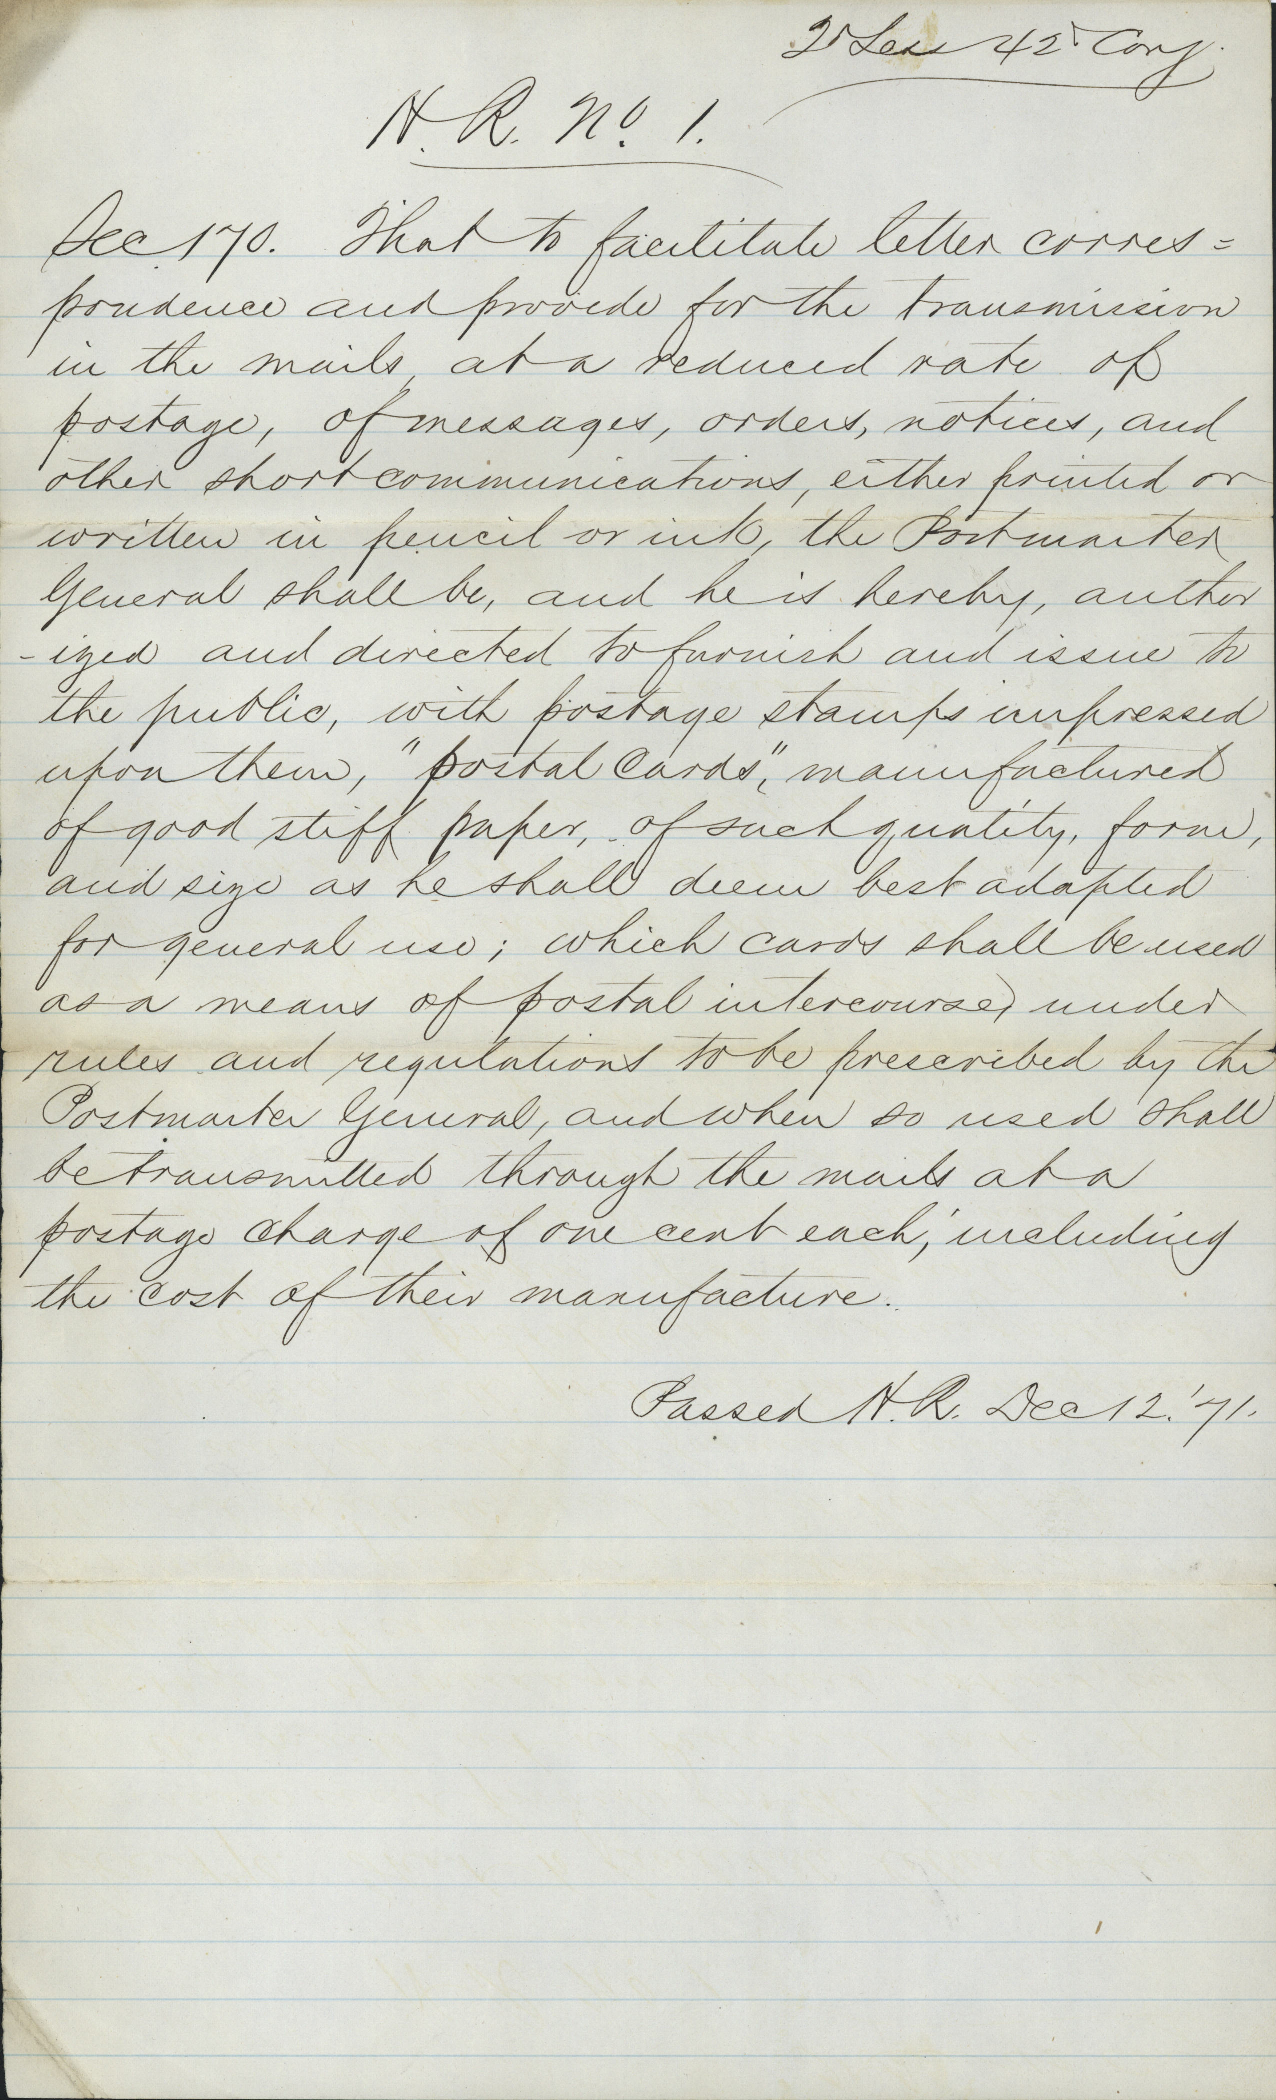 2d Ses 42d Cong.
H. R. No. 1.
Sec. 170. That to facilitate letter corres=
pondence and provide for the transmission
in the mails, at a reduced rate of
postage, of messages, orders, notices, and
other short communications, either printed or
written in pencil or ink, the Postmaster
General shall be, and he is hereby, author
-ized and directed to furnish and issue to
the public, with postage stamps impressed
upon them, "postal cards," manufactured
of good stiff paper, of such quality, form,
and size as he shall deem best adapted
for general use; which cards shall be used
as a means of postal intercourse, under
rules and regulations to be prescribed by the
Postmaster General, and when so used shall
be transmitted through the mails at a
postage charge of one cent each, including
the cost of their manufacture.
Passed H. R. Dec 12. '71.